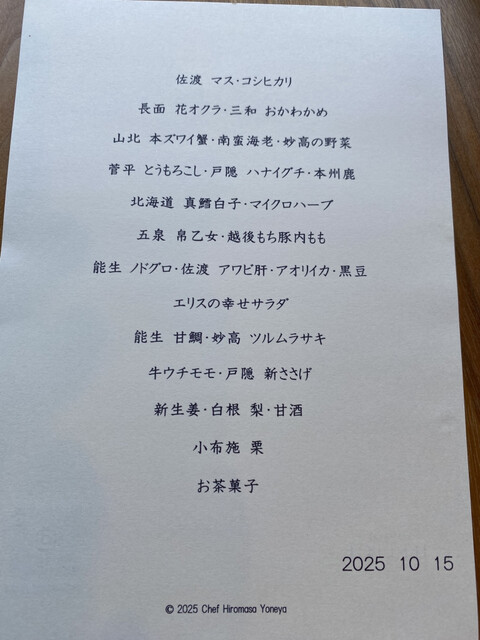 佐渡 マス・コシヒカリ
長面 花オクラ・三和 おかわかめ
山北 本ズワイ蟹・南蛮海老・妙高の野菜
菅平 とうもろこし・戸隠 ハナイグチ・本州鹿
北海道 真鱈白子・マイクロハーブ
五泉 帛乙女・越後もち豚内もも
能生 ノドグロ・佐渡 アワビ肝・アオリイカ・黒豆
エリスの幸せサラダ
能生 甘鯛・妙高 ツルムラサキ
牛ウチモモ・戸隠 新ささげ
新生姜・白根 梨・甘酒
小布施 栗
お茶菓子
2025 10 15
© 2025 Chef Hiromasa Yoneya